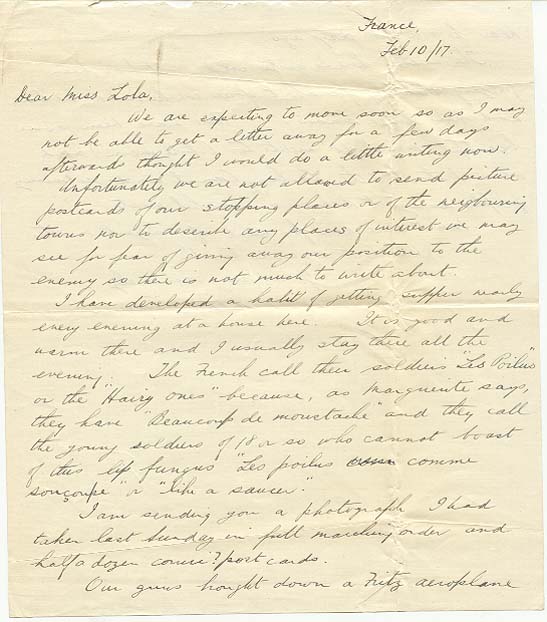 France,
Feb 10/17.
Dear Miss Lola,
We are expecting to move soon so as I may
not be able to get a letter away for a few days
afterwards thought I would do a little writing now.
Unfortunately we are not allowed to send picture
postcards of our stopping places or of the neigbouring
towns nor to describe any places of interest we may
see for fear of giving away our position to the
enemy so there is not much to write about.
I have developed a habit of getting supper nearly
every evening at a house here. It is good and
warm there and I usually stay there all the
evening. The French call their soldiers "Les Poilus"
or the "Hairy ones" because, as Marguerite says,
they have "Beaucoup de moustache" and they call
the young soldiers of 18 or so who cannot boast
of this lip fungus "Les poilus comme
sonçoupe" or "like a saucer."
I am sending you a photograph I had
taken last Sunday in full marching order and
half a dozen comic? post cards.
Our guns bought down a Fritz aeroplane